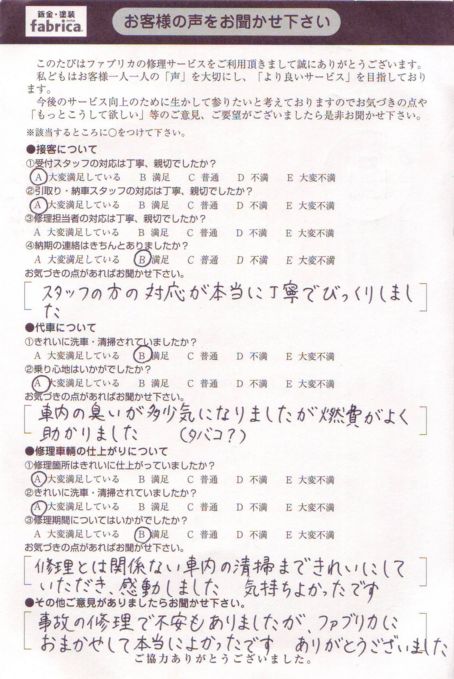 鈑金・塗装
fabrica.
お客様の声をお聞かせ下さい
このたびはファブリカの修理サービスをご利用頂きまして誠にありがとうございます。
私どもはお客様一人一人の「声」を大切にし、「より良いサービス」を目指しており
ます。
今後のサービス向上のために生かして参りたいと考えておりますのでお気づきの点や
「もっとこうして欲しい」等のご意見、ご要望がございましたら是非お聞かせ下さい。
※該当するところに○をつけて下さい。
●接客について
①受付スタッフの対応は丁寧、親切でしたか?
A 大変満足している B 満足 C 普通 D 不満 E 大変不満
②引取り・納車スタッフの対応は丁寧、親切でしたか?
A 大変満足している B 満足 C 普通 D 不満 E 大変不満
③修理担当者の対応は丁寧、親切でしたか?
A 大変満足している B 満足 C 普通 D 不満 E 大変不満
④納期の連絡はきちんとありましたか?
A 大変満足している B 満足 C 普通 D 不満 E 大変不満
お気づきの点があればお聞かせ下さい。
スタッフの方の対応が本当に丁寧でびっくりしまし
た
●代車について
①きれいに洗車・清掃されていましたか?
A 大変満足している B 満足 C 普通 D 不満 E 大変不満
②乗り心地はいかがでしたか?
A 大変満足している B 満足 C 普通 D 不満 E 大変不満
お気づきの点があればお聞かせ下さい。
車内の臭いが多少気になりましたが燃費がよく
助かりました (タバコ?)
●修理車輌の仕上がりについて
①修理箇所はきれいに仕上がっていましたか?
A 大変満足している B 満足 C 普通 D 不満 E 大変不満
②きれいに洗車・清掃されていましたか?
A 大変満足している B 満足 C 普通 D 不満 E 大変不満
③修理期間についてはいかがでしたか?
A 大変満足している B 満足 C 普通 D 不満 E 大変不満
お気づきの点があればお聞かせ下さい。
修理とは関係ない車内の清掃まできれいにして
いただき、感動しました 気持ちよかったです
●その他ご意見がありましたらお聞かせ下さい。
事故の修理で不安もありましたが、ファブリカに
おまかせして本当によかったです ありがとうございました
ご協力ありがとうございました。